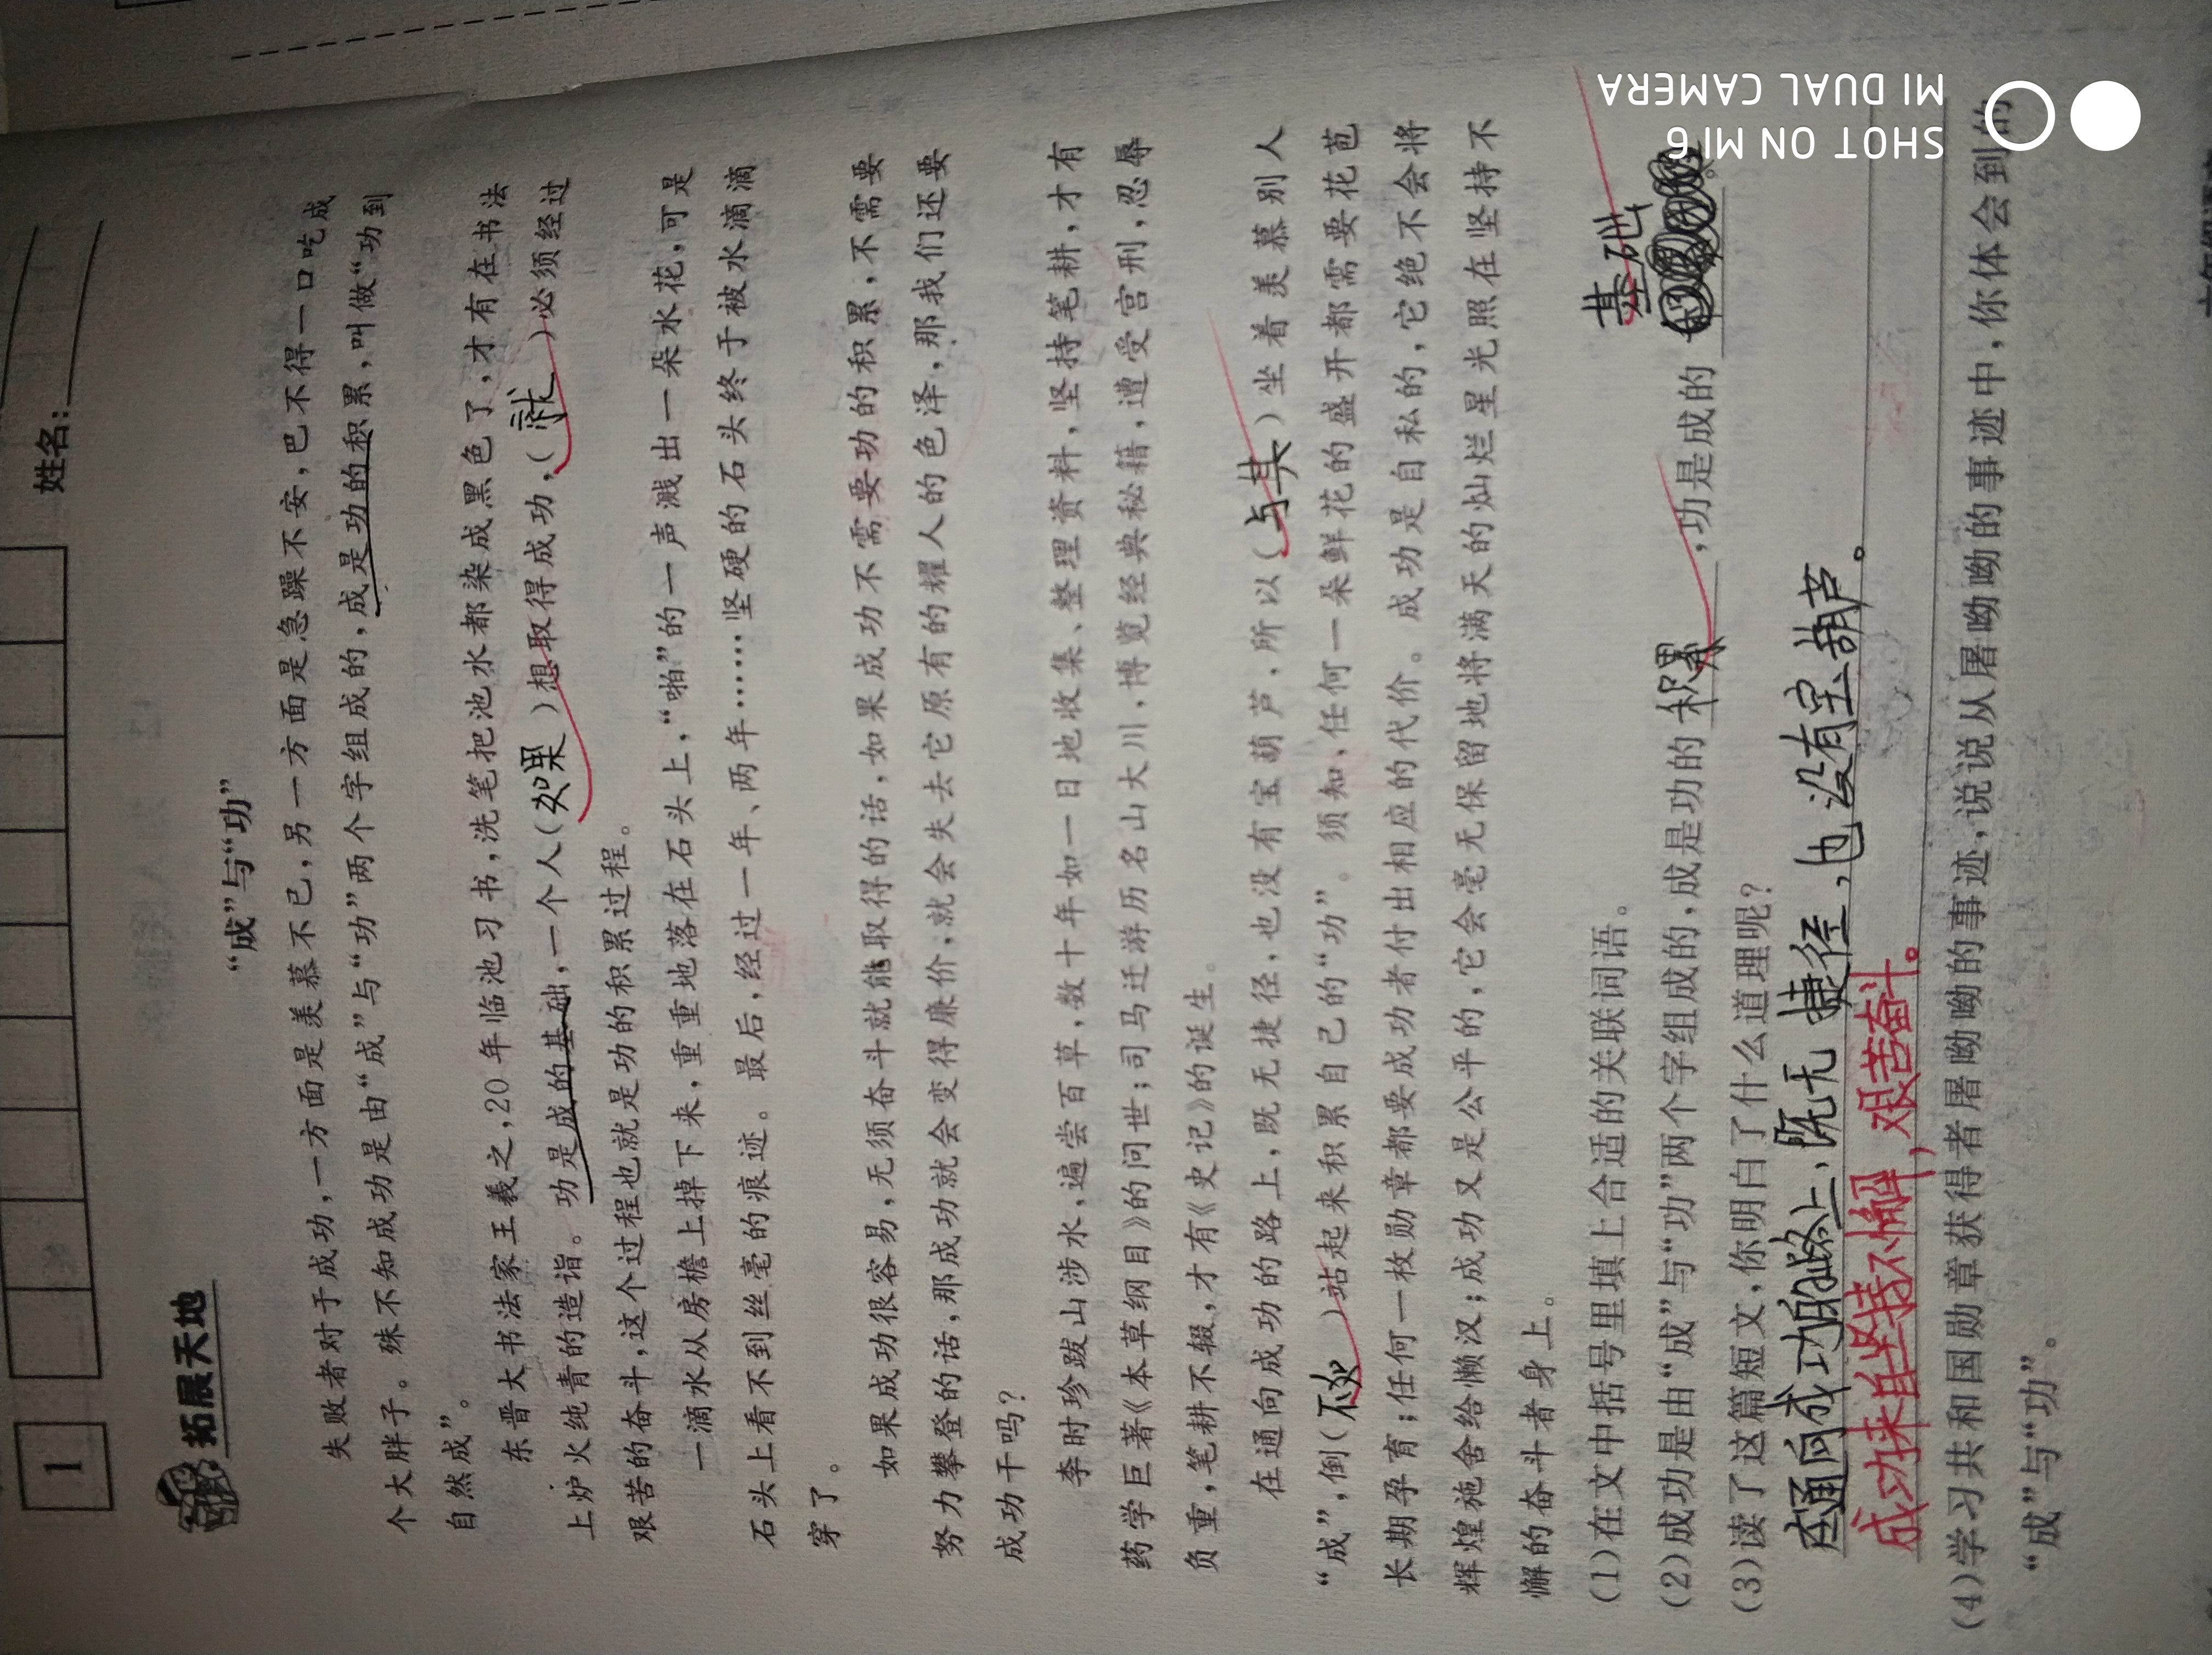 1
姓名:
拓展天地
“成”与“功”
失败者对于成功,一方面是羡慕不已,另一方面是急躁不安,巴不得一口吃成
个大胖子。殊不知成功是由“成”与“功”两个字组成的,成是功的积累,叫做“功到
自然成”。
东晋大书法家王羲之,20年临池习书,洗笔把池水都染成黑色了,才有在书法
上炉火纯青的造诣。功是成的基础,一个人(如果)想取得成功,(就)必须经过
艰苦的奋斗,这个过程也就是功的积累过程。
一滴水从房檐上掉下来,重重地落在石头上,“啪”的一声溅出一朵水花,可是
石头上看不到丝毫的痕迹。最后,经过一年、两年……坚硬的石头终于被水滴滴
穿了。
如果成功很容易,无须奋斗就能取得的话,如果成功不需要功的积累,不需要
努力攀登的话,那成功就会变得廉价,就会失去它原有的耀人的色泽,那我们还要
成功干吗?
李时珍跋山涉水,遍尝百草,数十年如一日地收集、整理资料,坚持笔耕,才有
药学巨著《本草纲目》的问世;司马迁游历名山大川,博览经典秘籍,遭受宫刑,忍辱
负重,笔耕不辍,才有《史记》的诞生。
在通向成功的路上,既无捷径,也没有宝葫芦,所以(与其)坐着羡慕别人
“成”,倒(不如)站起来积累自己的“功”。须知,任何一朵鲜花的盛开都需要花苞
长期孕育;任何一枚勋章都要成功者付出相应的代价。成功是自私的,它绝不会将
辉煌施舍给懒汉;成功又是公平的,它会毫无保留地将满天的灿烂星光照在坚持不
懈的奋斗者身上。
(1)在文中括号里填上合适的关联词语。
(2)成功是由“成”与“功”两个字组成的,成是功的积累,功是成的基础。
(3)读了这篇短文,你明白了什么道理呢?
在通向成功的路上,既无捷径,也没有宝葫芦。
成功来自坚持不懈,艰苦奋斗。
(4)学习共和国勋章获得者屠呦呦的事迹,说说从屠呦呦的事迹中,你体会到的
“成”与“功”。
SHOT ON MI 6
MI DUAL CAMERA